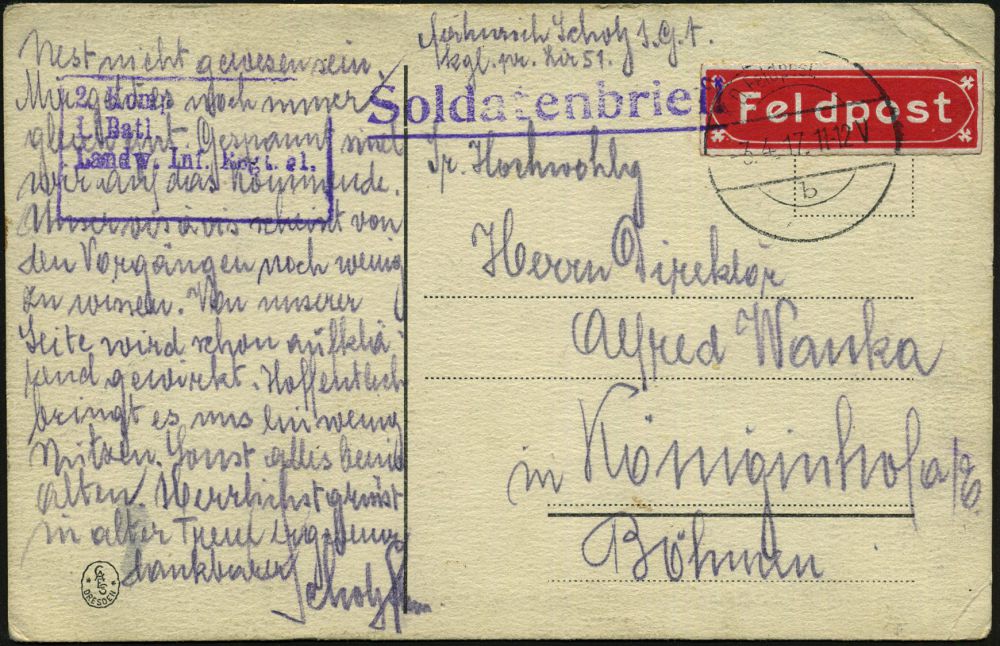 Nest nicht gewesen sein.
Mir geht es noch immer
gleich gut. Gespannt sind
wir auf das Kommende.
Unser vis à vis scheint von
den Vorgängen noch wenig
zu wissen. Von unserer
Seite wird schon aufklä-
rend gewirkt. Hoffentlich
bringt es uns ein wenig
Nutzen. Sonst alles beim
Alten. Herzlichst grüsst
in alter Treue ergebener
dankbarer
Scholz
2. Komp
I. Batl.
Landw. Inf. Regt. 51.
Scholz
kgl. pr. Lir 51.
Soldatenbrief
Feldpost
3.4.17.11-12V
b
Sr. Hochwohlg
Herrn Direktor
Alfred Wanka
in Königinhof a/E.
Böhmen
DRESDEN